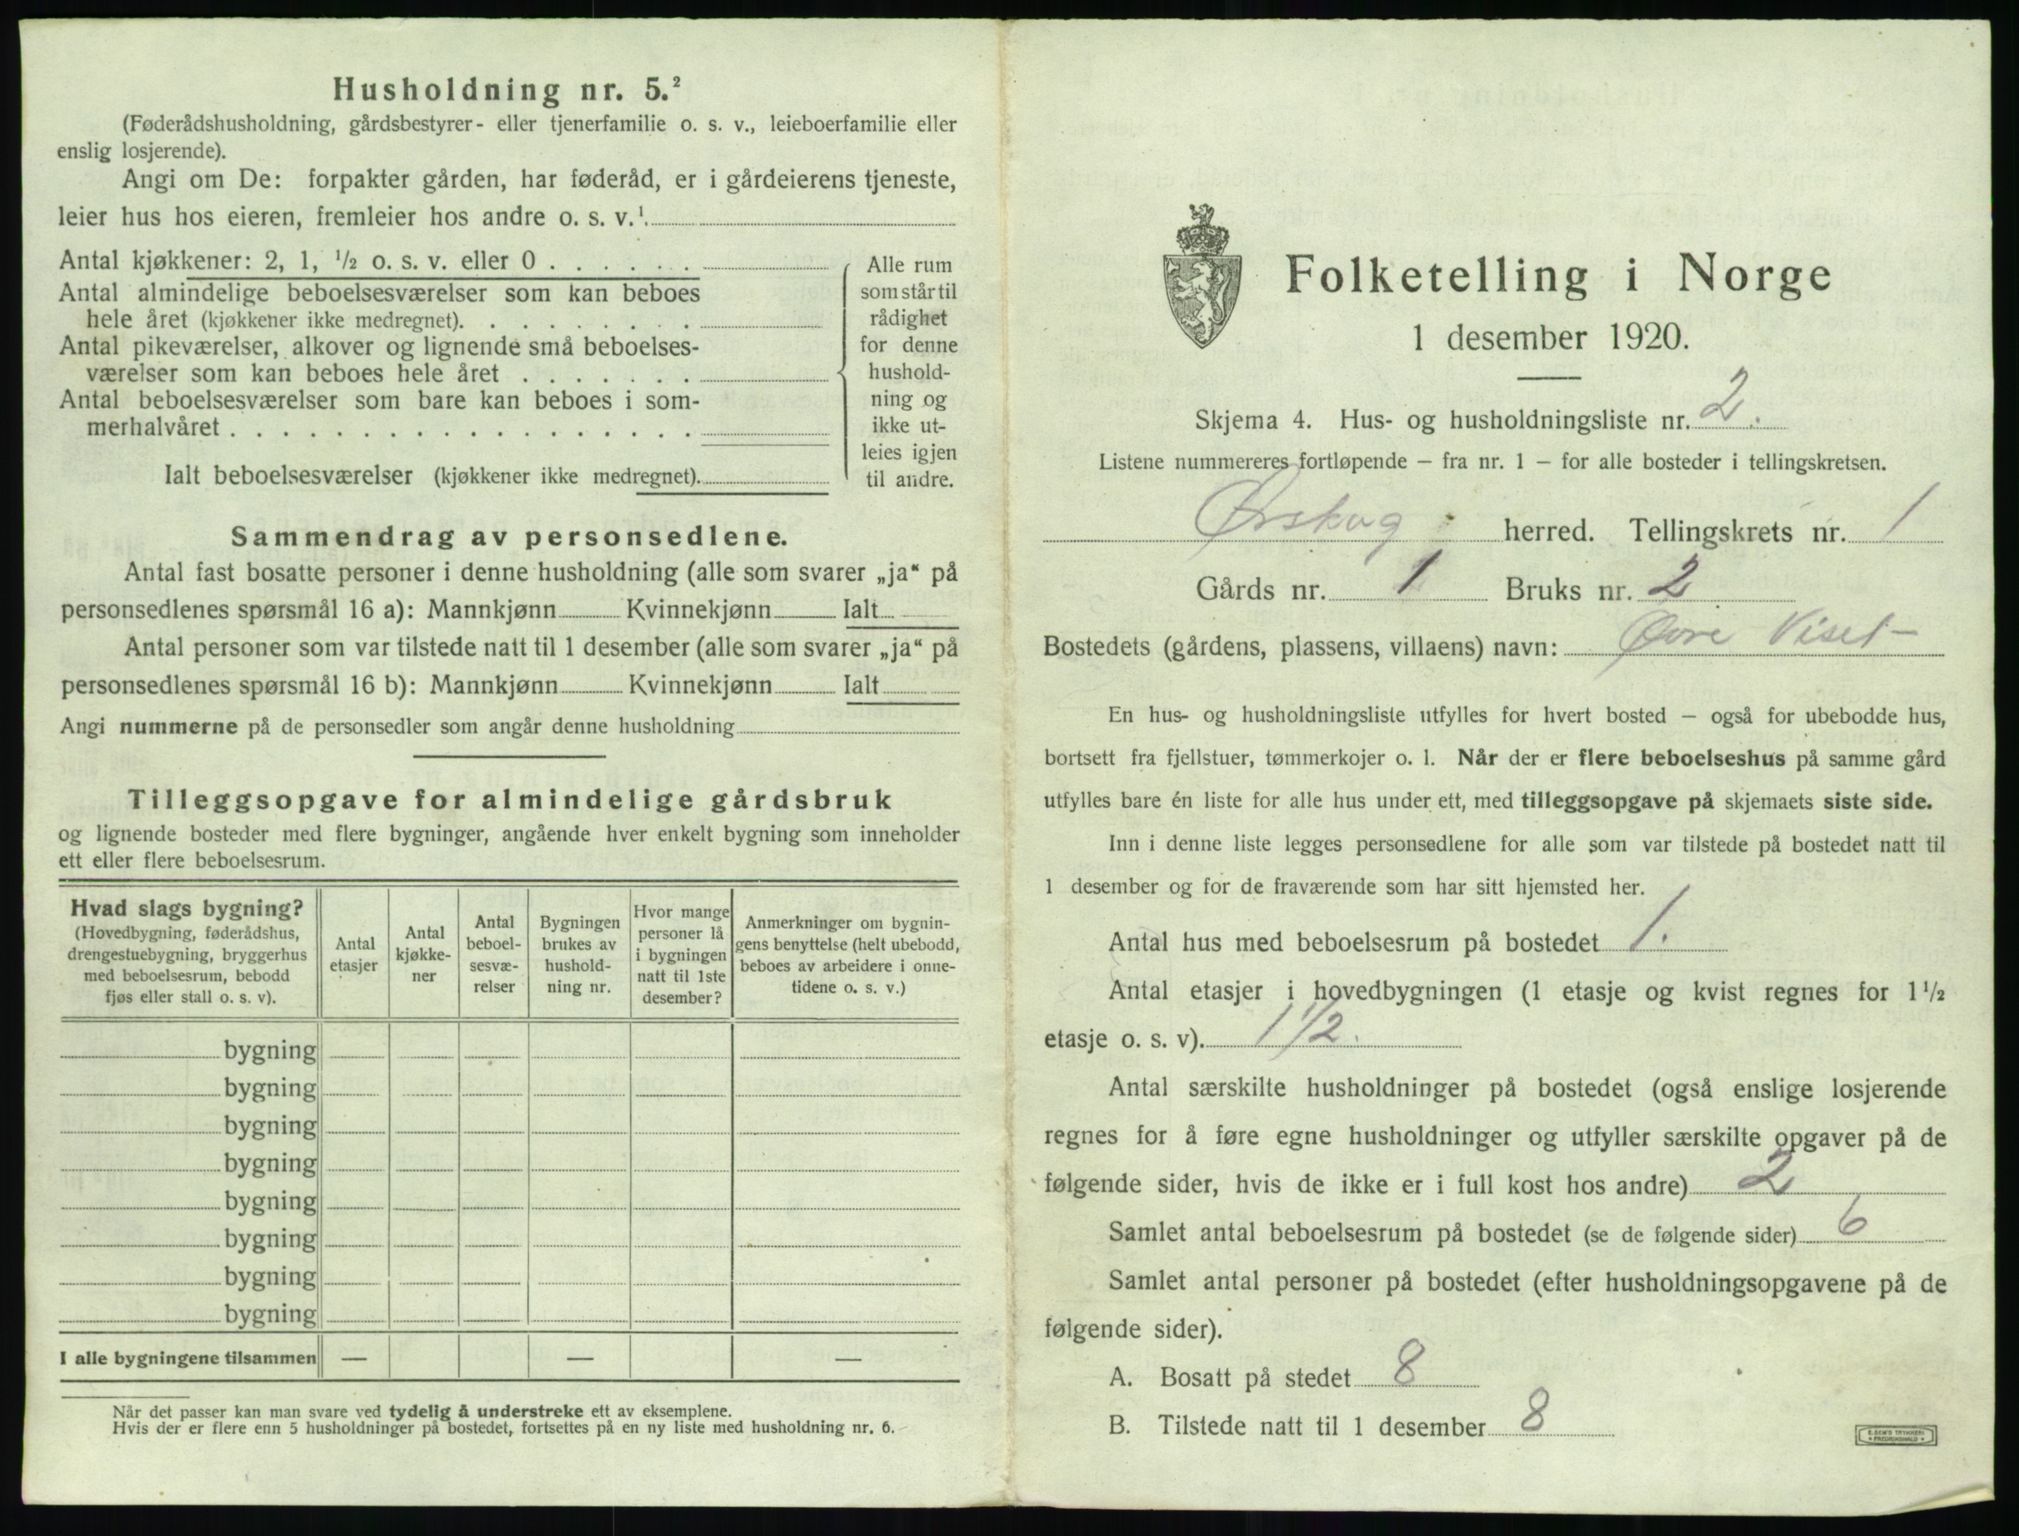 Husholdning nr. 5.²
(Føderådshusholdning, gårdsbestyrer- eller tjenerfamilie o. s. v., leieboerfamilie eller
enslig losjerende).
Angi om De: forpakter gården, har føderåd, er i gårdeierens tjeneste,
leier hus hos eieren, fremleier hos andre o. s. v.¹
Antal kjøkkener: 2, 1, ½ o. s. v. eller 0 . . . . . .
Antal almindelige beboelsesværelser som kan beboes
hele året (kjøkkener ikke medregnet). . . . . . . . .
Antal pikeværelser, alkover og lignende små beboelses-
værelser som kan beboes hele året . . . . . . .
Antal beboelsesværelser som bare kan beboes i som-
merhalvåret . . . . . . . . . . . . . . . . . .
Ialt beboelsesværelser (kjøkkener ikke medregnet).
Alle rum
som står til
rådighet
for denne
hushold-
ning og
ikke ut-
leies igjen
til andre.
Sammendrag av personsedlene.
Antal fast bosatte personer i denne husholdning (alle som svarer „ja“ på
personsedlenes spørsmål 16 a): Mannkjønn Kvinnekjønn Ialt
Antal personer som var tilstede natt til 1 desember (alle som svarer „ja“ på
personsedlenes spørsmål 16 b): Mannkjønn Kvinnekjønn Ialt
Angi nummerne på de personsedler som angår denne husholdning
Tilleggsopgave for almindelige gårdsbruk
og lignende bosteder med flere bygninger, angående hver enkelt bygning som inneholder
ett eller flere beboelsesrum.
Hvad slags bygning?
(Hovedbygning, føderådshus,
drengestuebygning, bryggerhus
med beboelsesrum, bebodd
fjøs eller stall o. s. v).
Antal
etasjer
Antal
kjøkke-
ner
Antal
beboel-
sesvæ-
relser
Bygningen
brukes av
hushold-
ning nr.
Hvor mange
personer lå
i bygningen
natt til 1ste
desember?
Anmerkninger om bygnin-
gens benyttelse (helt ubebodd,
beboes av arbeidere i onne-
tidene o. s. v.)
bygning
bygning
bygning
bygning
bygning
bygning
bygning
bygning
I alle bygningene tilsammen — — —
Når det passer kan man svare ved tydelig å understreke ett av eksemplene.
Hvis der er flere enn 5 husholdninger på bostedet, fortsettes på en ny liste med husholdning nr. 6.
Folketelling i Norge
1 desember 1920.
Skjema 4. Hus- og husholdningsliste nr. 2.
Listene nummereres fortløpende — fra nr. 1 — for alle bosteder i tellingskretsen.
Ørskog herred. Tellingskrets nr. 1
Gårds nr. 1 Bruks nr. 2
Bostedets (gårdens, plassens, villaens) navn: Øvre Viset
En hus- og husholdningsliste utfylles for hvert bosted — også for ubebodde hus,
bortsett fra fjellstuer, tømmerkojer o. l. Når der er flere beboelseshus på samme gård
utfylles bare én liste for alle hus under ett, med tilleggsopgave på skjemaets siste side.
Inn i denne liste legges personsedlene for alle som var tilstede på bostedet natt til
1 desember og for de fraværende som har sitt hjemsted her.
Antal hus med beboelsesrum på bostedet 1.
Antal etasjer i hovedbygningen (1 etasje og kvist regnes for 1½
etasje o. s. v). 1 1/2.
Antal særskilte husholdninger på bostedet (også enslige losjerende
regnes for å føre egne husholdninger og utfyller særskilte opgaver på de
følgende sider, hvis de ikke er i full kost hos andre) 2
Samlet antal beboelsesrum på bostedet (se de følgende sider) 6
Samlet antal personer på bostedet (efter husholdningsopgavene på de
følgende sider).
A. Bosatt på stedet 8
B. Tilstede natt til 1 desember 8